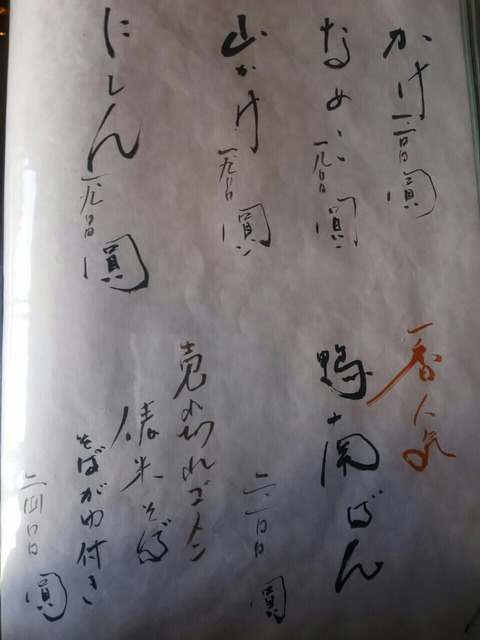 かけ 圓
なめこ 一八〇〇圓
山かけ 一九〇〇圓
にしん 一九〇〇圓
一番人気
鴨南ばん
圓
売り切れゴメン
米そば
そばがゆ付き
二四〇〇圓